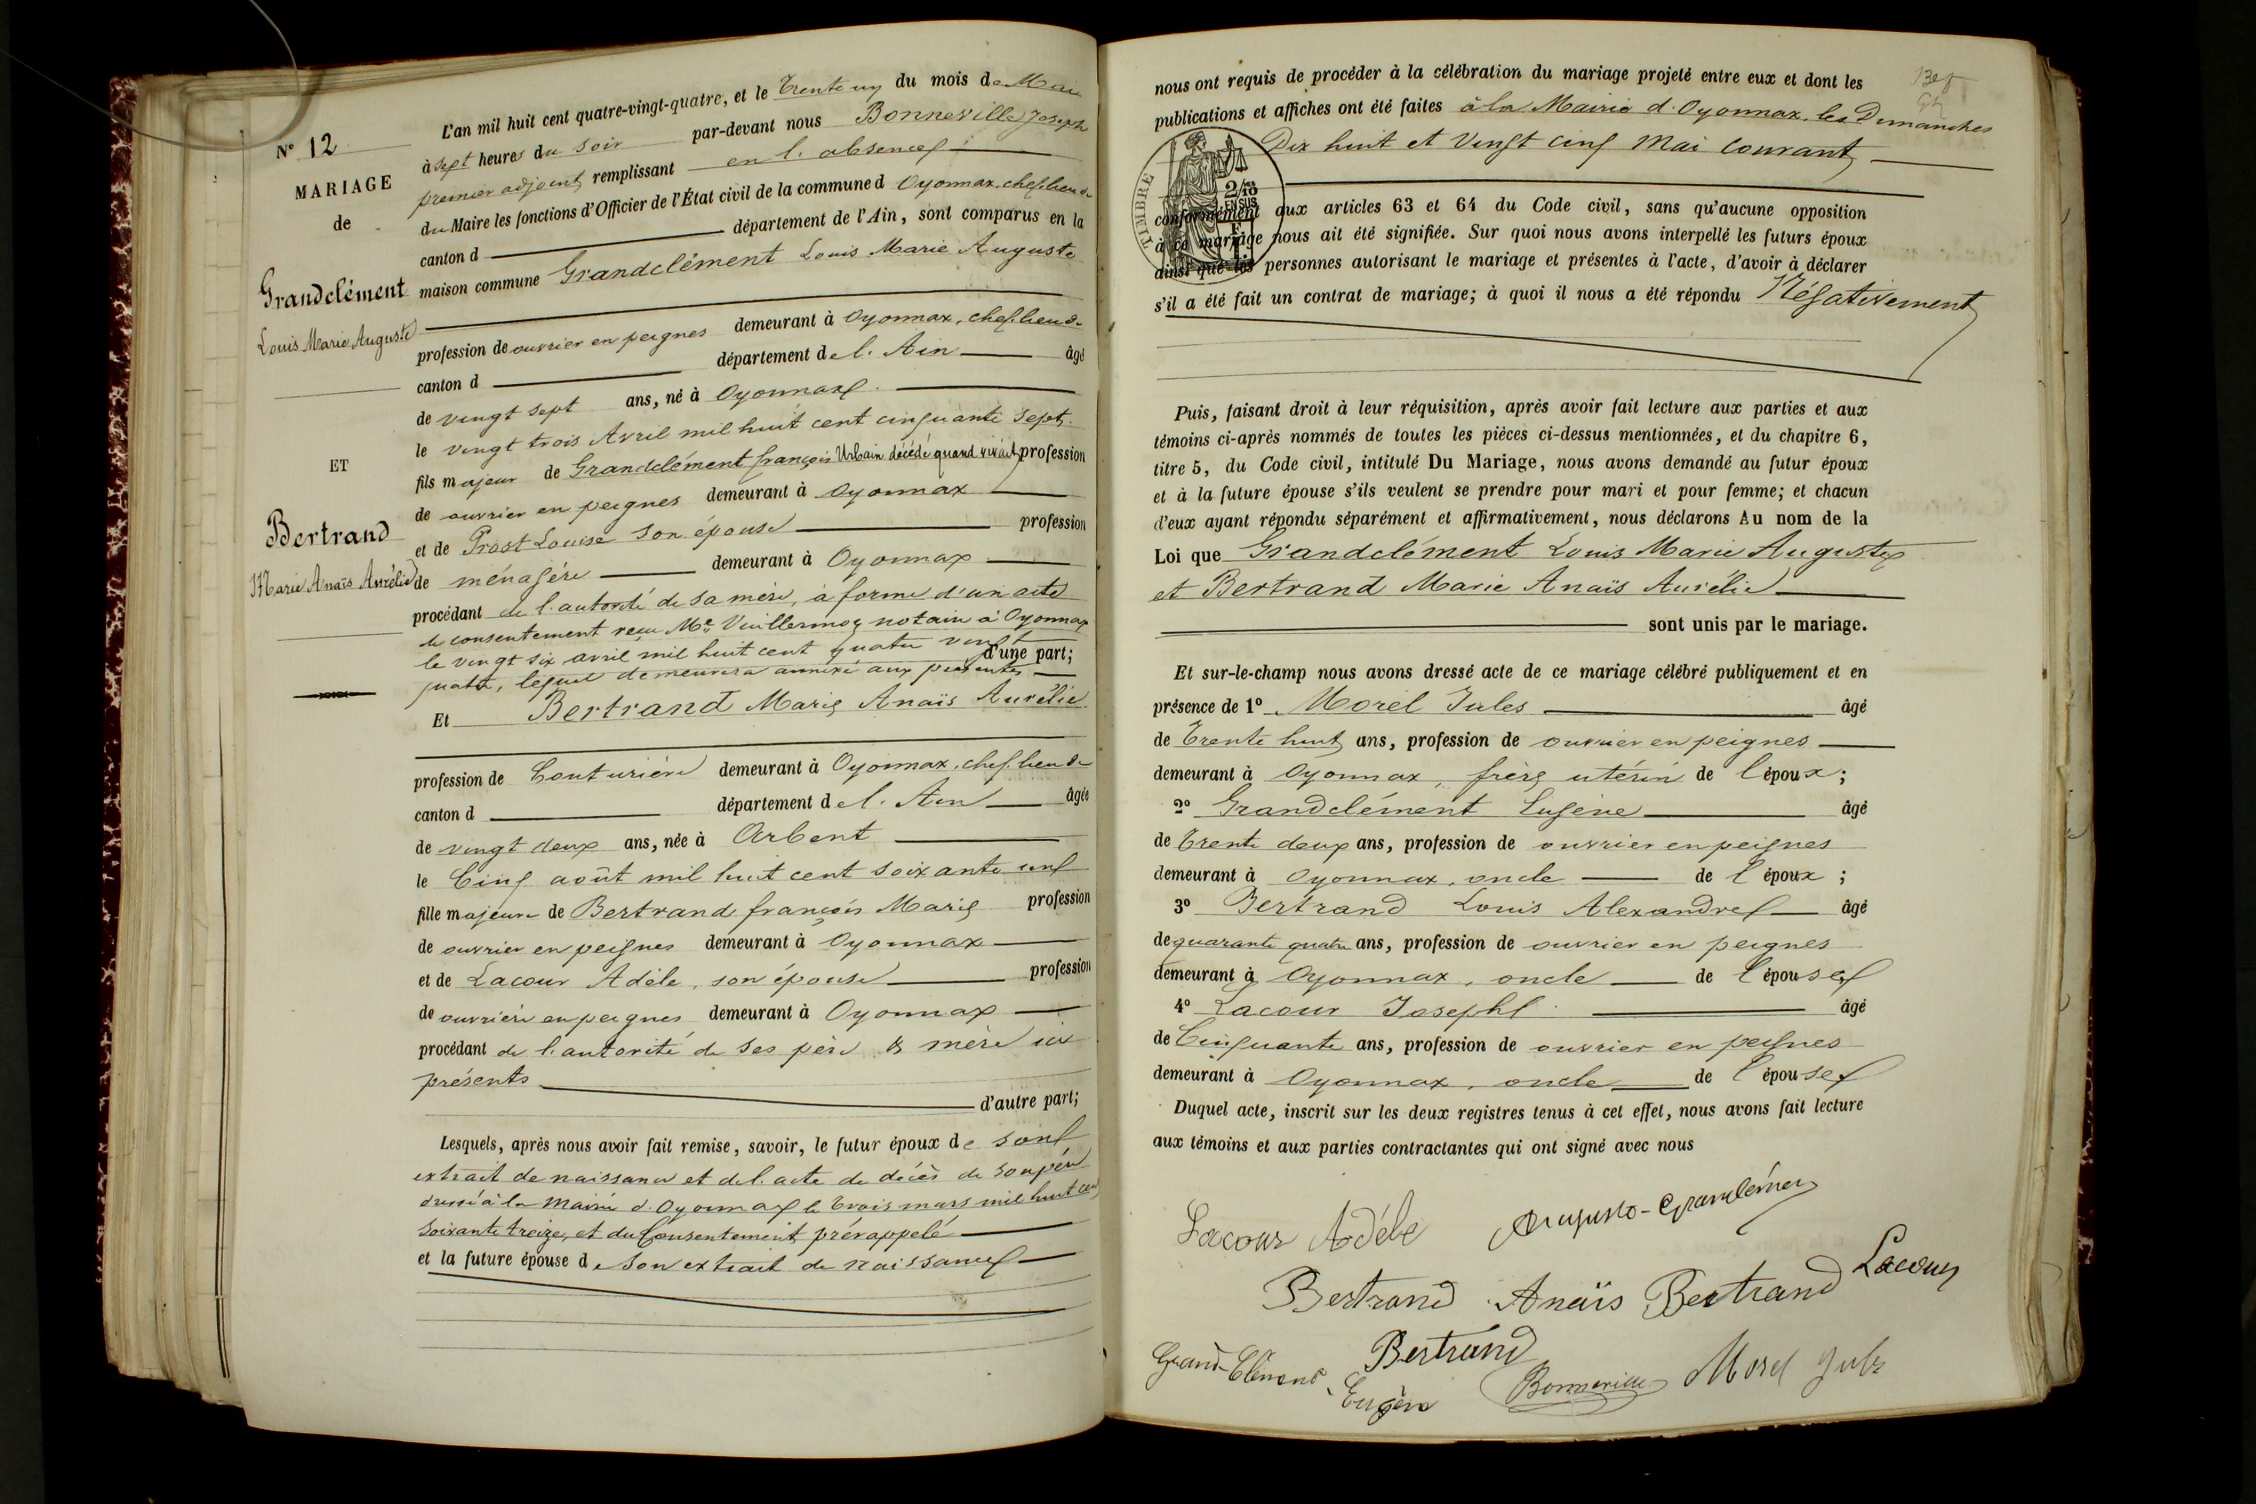 N° 12
MARIAGE
de
Grandclément
Louis Marie Auguste
ET
Bertrand
Marie Anaïs Aurélie
L'an mil huit cent quatre-vingt-quatre, et le Trente un du mois de Mai
à sept heures du soir par-devant nous Bonneville Joseph
premier adjoint, remplissant en l'absence
du Maire les fonctions d'Officier de l'État civil de la commune d Oyonnax, chef-lieu de
canton d département de l'Ain, sont comparus en la
maison commune Grandclément Louis Marie Auguste
profession de ouvrier en peignes demeurant à Oyonnax, chef-lieu de
canton d département de l'Ain âgé
de vingt sept ans, né à Oyonnax
le vingt trois Avril mil huit cent cinquante sept
fils majeur de Grandclément françois Urbain décédé quand vivait profession
de ouvrier en peignes demeurant à Oyonnax
et de Prost Louise son épouse profession
de ménagère demeurant à Oyonnax
procédant de l'autorité de sa mère, à forme d'un acte
de consentement reçu Me Vuillermoz notaire à Oyonnax
le vingt six avril mil huit cent quatre vingt
quatre, lequel demeurera annexé aux présentes d'une part;
Et Bertrand Marie Anaïs Aurélie
profession de Couturière demeurant à Oyonnax, chef-lieu de
canton d département de l'Ain âgée
de vingt deux ans, née à Arbent
le Cinq août mil huit cent soixante un
fille majeure de Bertrand françois Marie profession
de ouvrier en peignes demeurant à Oyonnax
et de Lacour Adèle, son épouse profession
de ouvrière en peignes demeurant à Oyonnax
procédant de l'autorité de ses père & mère ici
présents
d'autre part;
Lesquels, après nous avoir fait remise, savoir, le futur époux de son
extrait de naissance et de l'acte de décès de son père
dressé à la Mairie d'Oyonnax le trois mars mil huit cent
soixante treize, et du Consentement prérappelé
et la future épouse de son extrait de naissance
nous ont requis de procéder à la célébration du mariage projeté entre eux et dont les
publications et affiches ont été faites à la Mairie d'Oyonnax, les Dimanches
Dix huit et Vingt cinq Mai courant
TIMBRE
2/10
EN SUS
conformément aux articles 63 et 64 du Code civil, sans qu'aucune opposition
à ce mariage nous ait été signifiée. Sur quoi nous avons interpellé les futurs époux
ainsi que les personnes autorisant le mariage et présentes à l'acte, d'avoir à déclarer
s'il a été fait un contrat de mariage; à quoi il nous a été répondu Négativement
Puis, faisant droit à leur réquisition, après avoir fait lecture aux parties et aux
témoins ci-après nommés de toutes les pièces ci-dessus mentionnées, et du chapitre 6,
titre 5, du Code civil, intitulé Du Mariage, nous avons demandé au futur époux
et à la future épouse s'ils veulent se prendre pour mari et pour femme; et chacun
d'eux ayant répondu séparément et affirmativement, nous déclarons Au nom de la
Loi que Grandclément Louis Marie Auguste
et Bertrand Marie Anaïs Aurélie
sont unis par le mariage.
Et sur-le-champ nous avons dressé acte de ce mariage célébré publiquement et en
présence de 1° Morel Jules âgé
de Trente huit ans, profession de ouvrier en peignes
demeurant à Oyonnax, frère utérin de l'époux;
2° Grandclément Eugène âgé
de Trente deux ans, profession de ouvrier en peignes
demeurant à Oyonnax, oncle de l'époux;
3° Bertrand Louis Alexandre âgé
de quarante quatre ans, profession de ouvrier en peignes
demeurant à Oyonnax, oncle de l'épouse
4° Lacour Joseph âgé
de Cinquante ans, profession de ouvrier en peignes
demeurant à Oyonnax, oncle de l'épouse
Duquel acte, inscrit sur les deux registres tenus à cet effet, nous avons fait lecture
aux témoins et aux parties contractantes qui ont signé avec nous
Lacour Adéle
Bertrand Anaïs Bertrand Lacour
Grand-Clément Bertrand
Eugène Bonneville Morel Jules